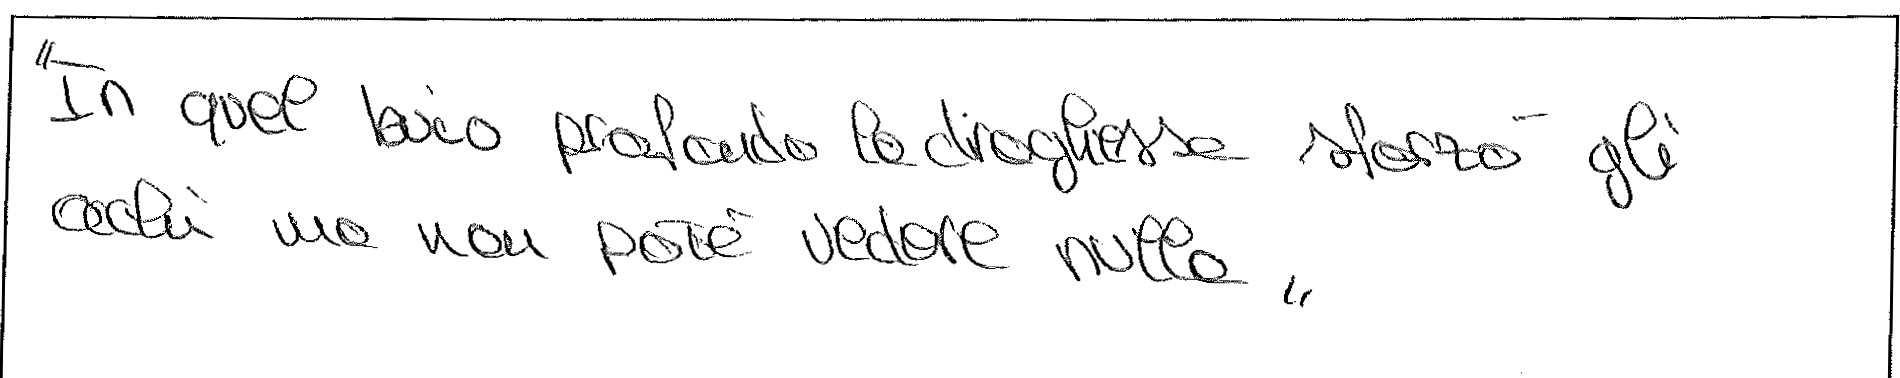 "In quel buio profondo la draghessa sforzò gli
occhi ma non poté vedere nulla"